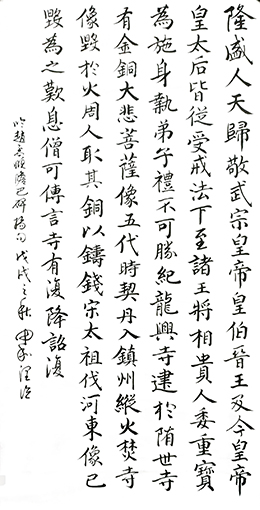 隆盛人天歸敬武宗皇帝皇伯晉王及今皇帝
皇太后皆從受戒法下至諸王將相貴人委重寶
為施身執弟子禮不可勝紀龍興寺建於隋世寺
有金銅大悲菩薩像五代時契丹入鎮州縱火焚寺
像毀於火周人取其銅以鑄錢宋太祖伐河東像已
毀為之歎息僧可傳言寺有復降詔復
趙孟頫膽巴碑 戊戌之秋